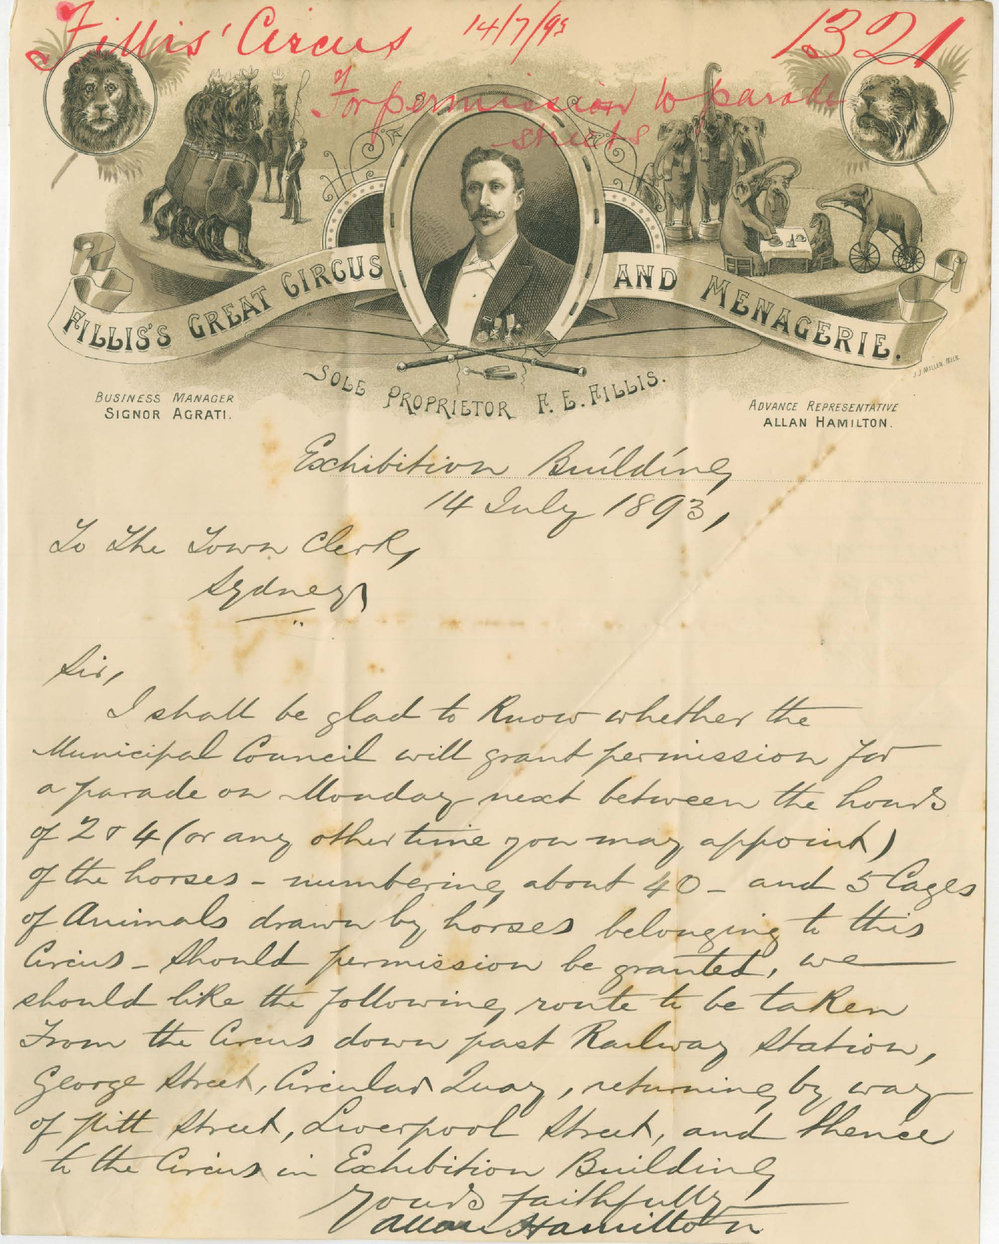 Fillis' Circus 14/7/93 1321
of
For permission to parade
streets
FILLIS'S GREAT CIRCUS AND MENAGERIE.
SOLE PROPRIETOR F. E. FILLIS.
BUSINESS MANAGER
SIGNOR AGRATI.
ADVANCE REPRESENTATIVE
ALLAN HAMILTON.
Exhibition Building
14 July 1893,
To The Town Clerk,
Sydney
Sir,
I shall be glad to know whether the
Municipal Council will grant permission for
a parade on Monday next between the hours
of 2 & 4 (or any other time you may appoint)
of the horses – numbering about 40 – and 5 Cages
of Animals drawn by horses belonging to this
Circus – Should permission be granted, we
should like the following route to be taken
From the Circus down past Railway Station,
George Street, Circular Quay, returning by way
of Pitt Street, Liverpool Street, and thence
to the Circus in Exhibition Building
Yours faithfully
Allan Hamilton